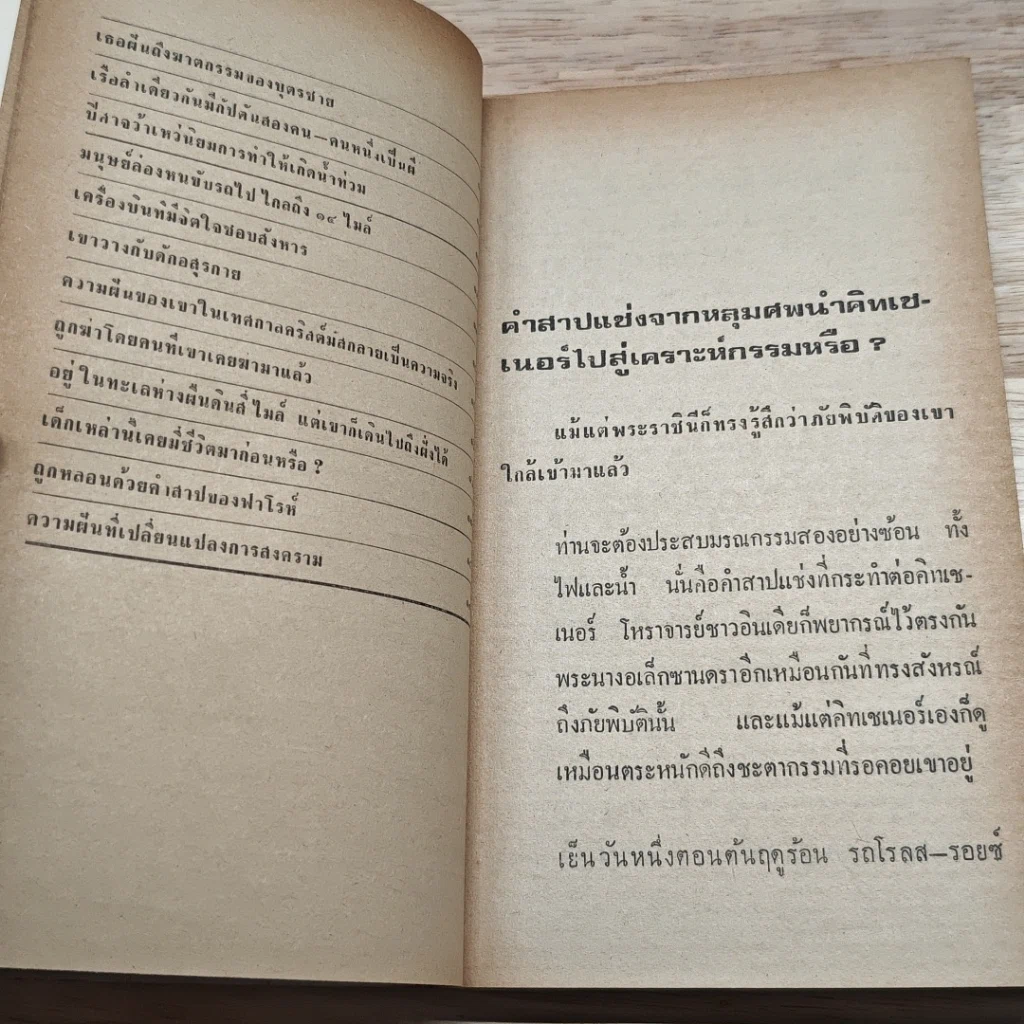 เธอฝันถึงฆาตกรรมของบุตรชาย
เรือลำเดียวกันมีกัปตันสองคน—คนหนึ่งเป็นผี
ปีศาจว้าเหว่นิยมการทำให้เกิดน้ำท่วม
มนุษย์ล่องหนขับรถไป ไกลถึง ๑๔ ไมล์
เครื่องบินที่มีจิตใจชอบสังหาร
เขาวางกับดักอสุรกาย
ความฝันของเขาในเทศกาลคริสต์มัสกลายเป็นความจริง
ถูกฆ่าโดยคนที่เขาเคยฆามาแล้ว
อยู่ ในทะเลห่างผืนดินสี่ ไมล์ แต่เขาก็เดินไปถึงฝั่งได้
เด็กเหล่านี้เคยมีชีวิตมาก่อนหรือ ?
ถูกหลอนด้วยคำสาปของฟาโรห์
ความฝันที่เปลี่ยนแปลงการสงคราม
คำสาปแช่งจากหลุมศพนำคิทเช-
เนอร์ไปสู่เคราะห์กรรมหรือ ?
แม้แต่พระราชินีก็ทรงรู้สึกว่าภัยพิบัติของเขา
ใกล้เข้ามาแล้ว
ท่านจะต้องประสบมรณกรรมสองอย่างซ้อน ทั้ง
ไฟและน้ำ นั่นคือคำสาปแช่งที่กระทำต่อคิทเช-
เนอร์ โหราจารย์ชาวอินเดียก็พยากรณ์ไว้ตรงกัน
พระนางอเล็กซานดราอีกเหมือนกันที่ทรงสังหรณ์
ถึงภัยพิบัตินั้น และแม้แต่คิทเชเนอร์เองก็ดู
เหมือนตระหนักดีถึงชะตากรรมที่รอคอยเขาอยู่
เย็นวันหนึ่งตอนต้นฤดูร้อน รถโรลส—รอยซ์